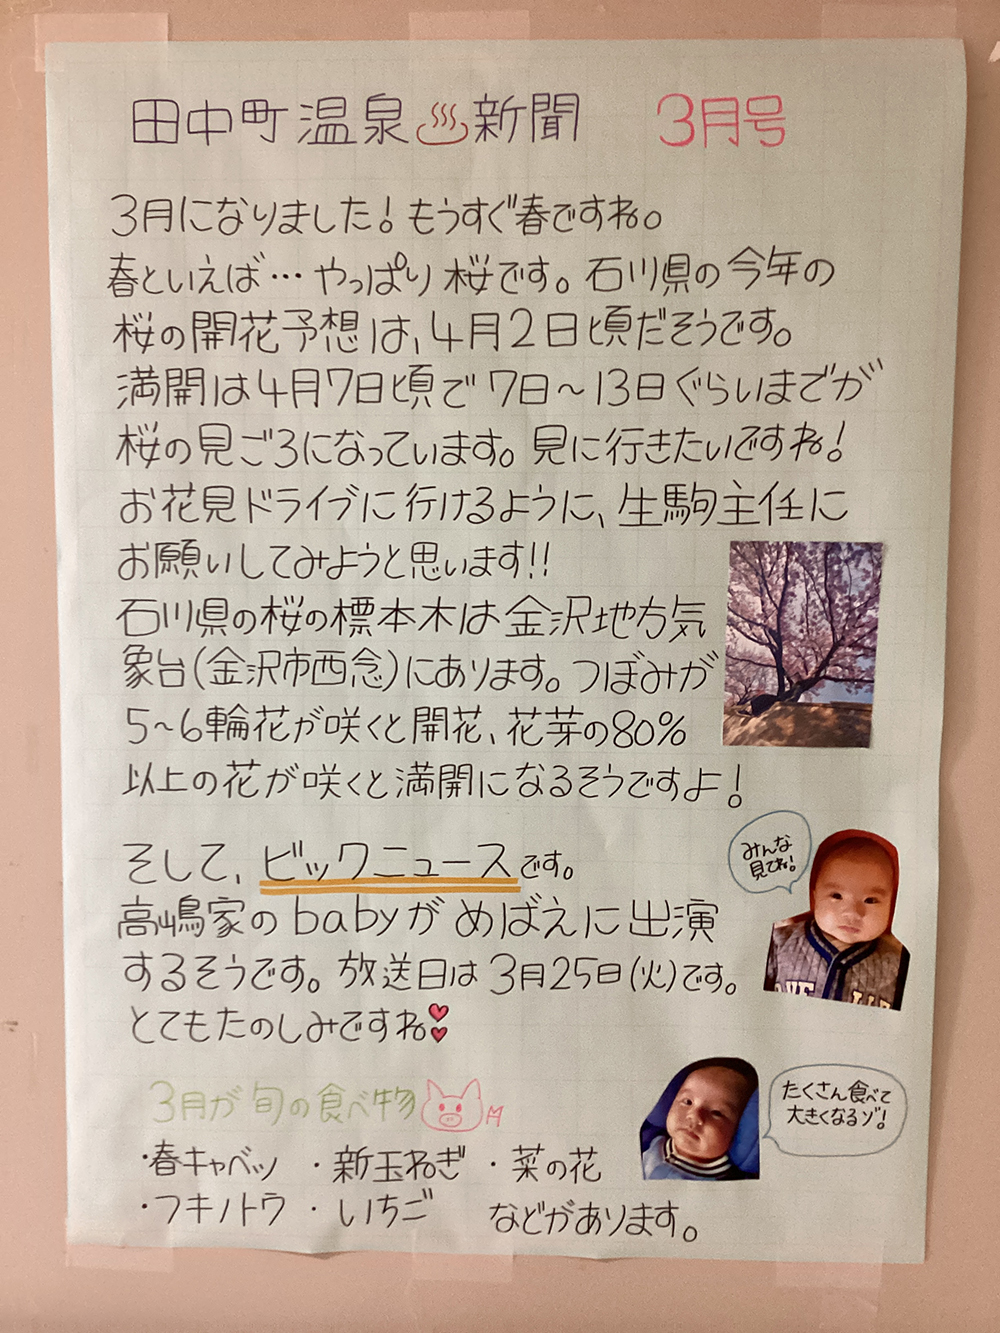 田中町温泉♨新聞　3月号
3月になりました！もうすぐ春ですね。
春といえば…やっぱり桜です。石川県の今年の
桜の開花予想は、4月2日頃だそうです。
満開は4月7日頃で7日〜13日ぐらいまでが
桜の見ごろになっています。見に行きたいですね！
お花見ドライブに行けるように、生駒主任に
お願いしてみようと思います!!
石川県の桜の標本木は金沢地方気
象台(金沢市西念)にあります。つぼみが
5〜6輪花が咲くと開花、花芽の80%
以上の花が咲くと満開になるそうですよ！
そして、ビックニュースです。
みんな
見てね！
高嶋家のbabyがめばえに出演
するそうです。放送日は3月25日(火)です。
とてもたのしみですね
3月が旬の食べ物
たくさん食べて
大きくなるゾ！
・春キャベツ　・新玉ねぎ　・菜の花
・フキノトウ　・いちご　などがあります。